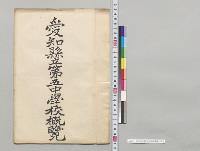 愛知縣立第五中學校概覽